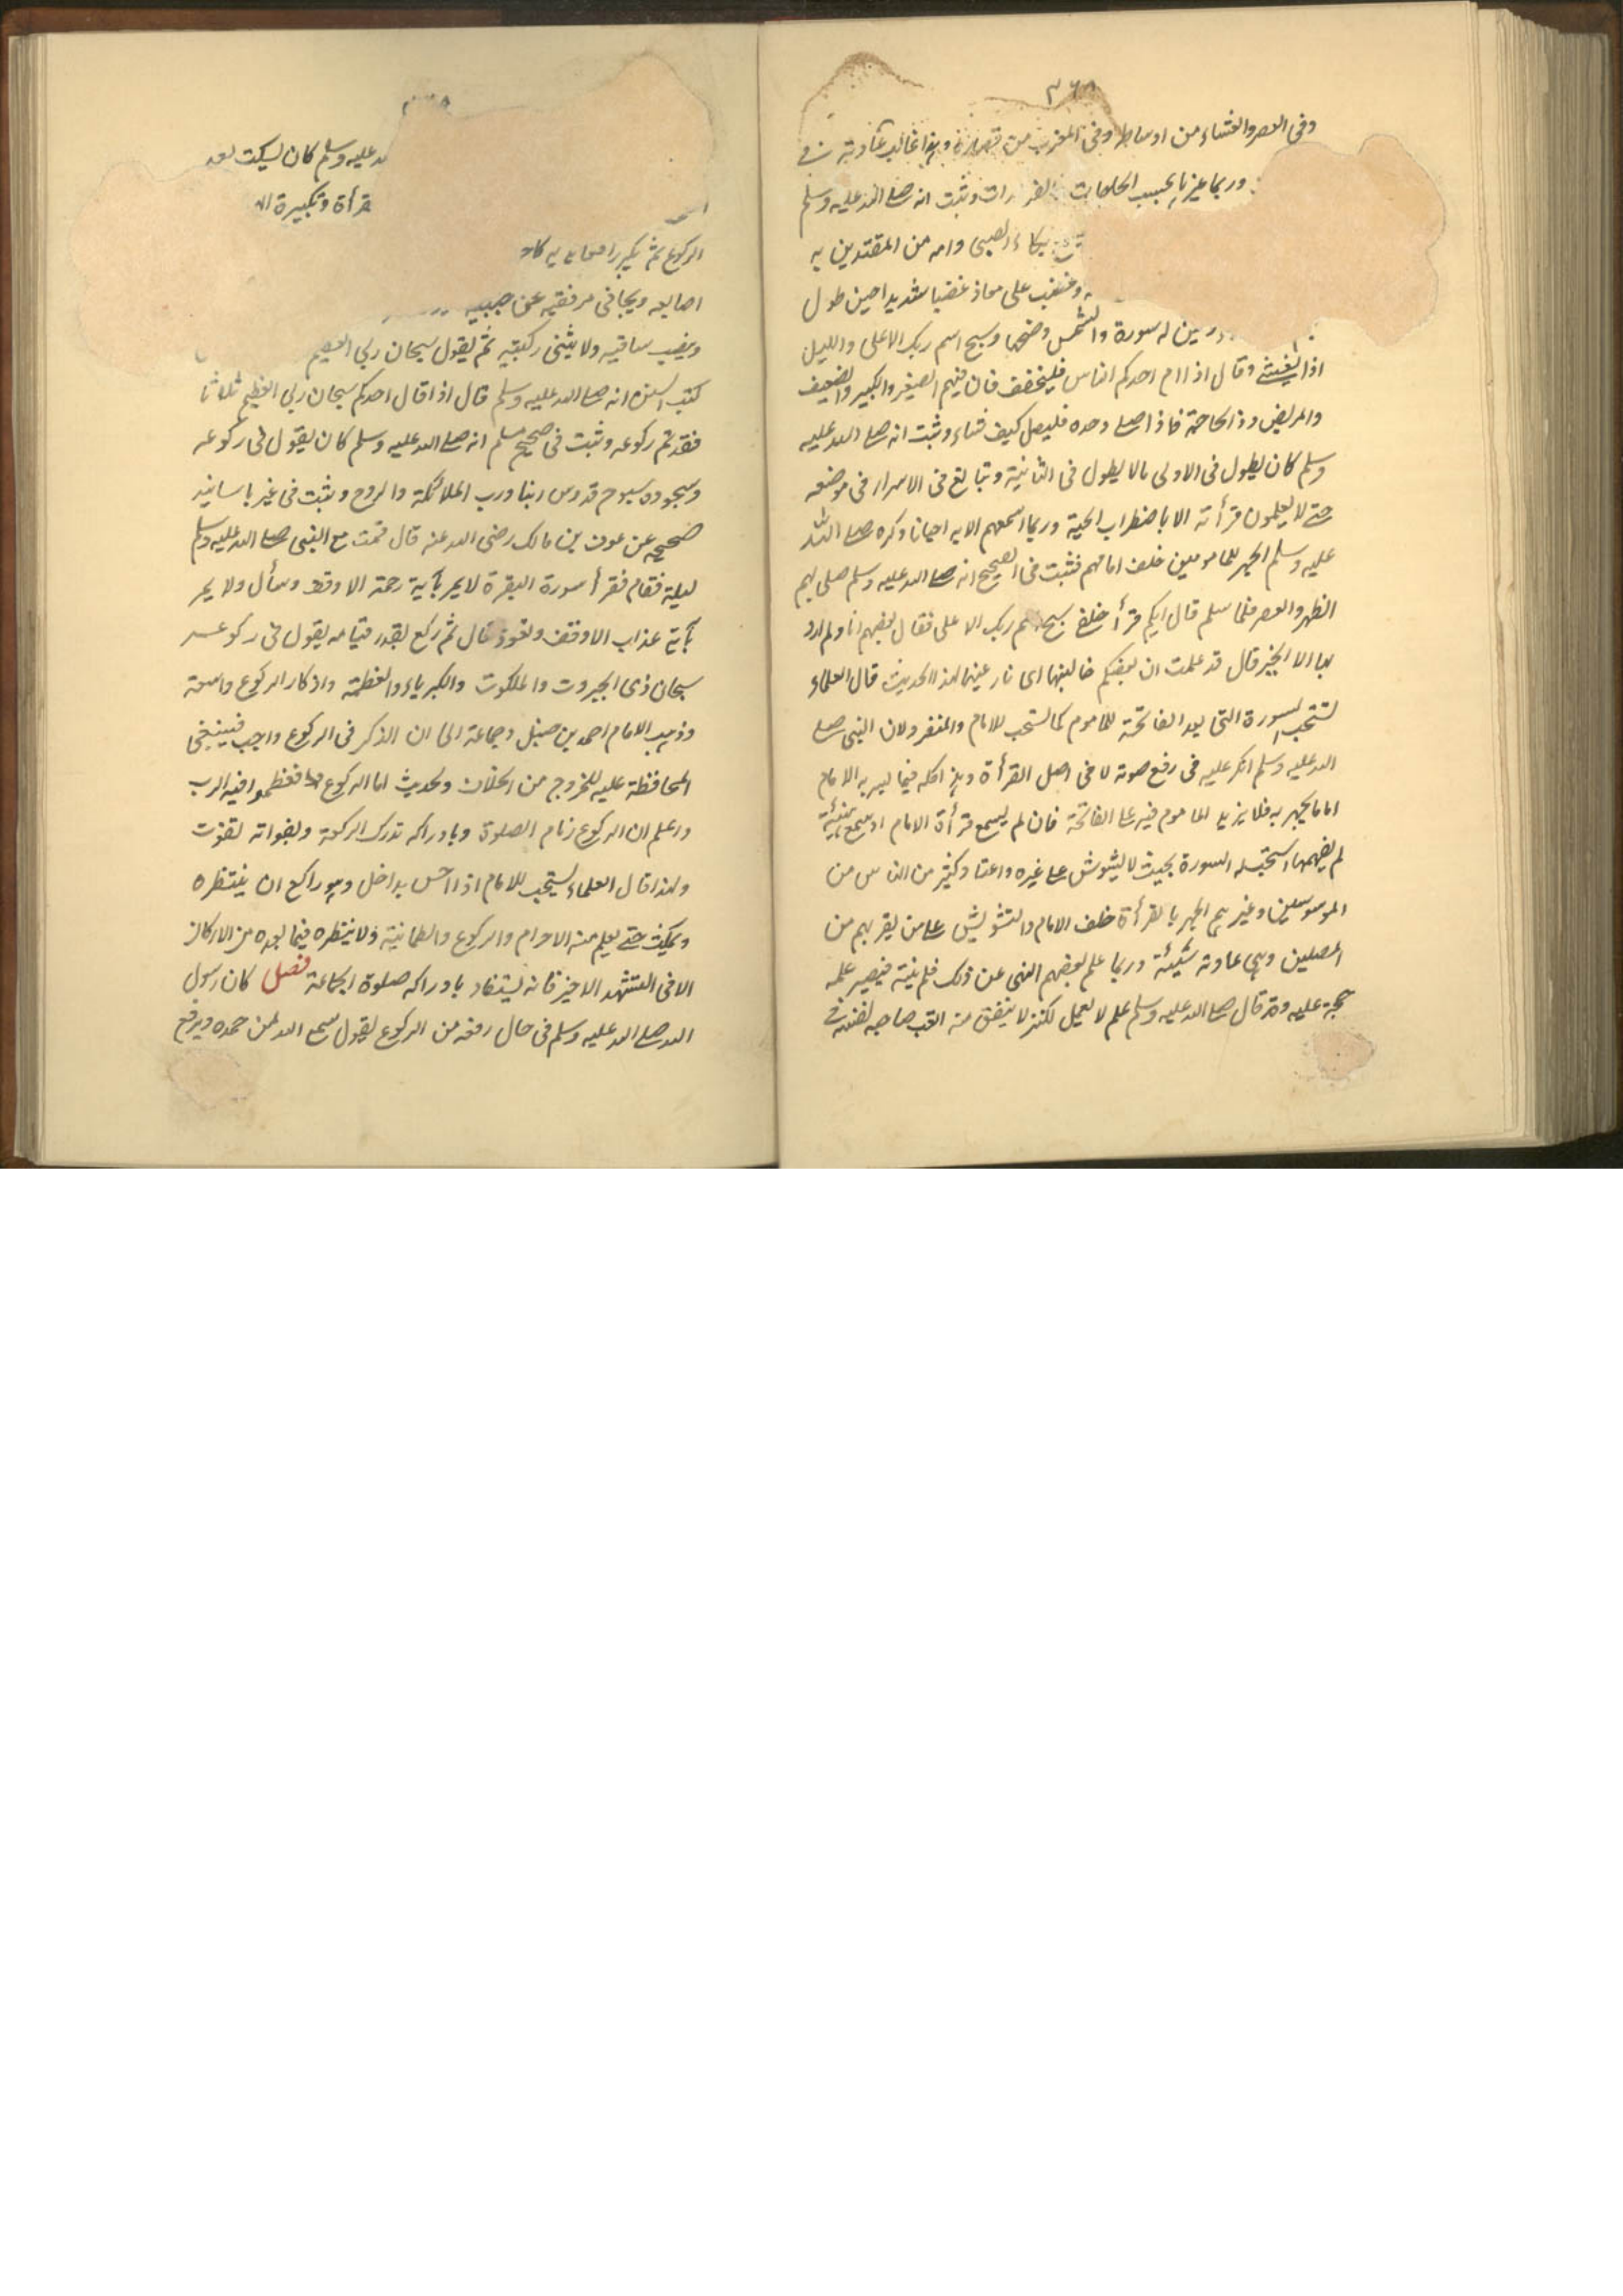 ٣٦٨
وفى العصر والعشاء من اوساطه وفى المغرب من قصاره وهذا غالب عادته فى
وربما غير بحسب الحاجات وثبت انه صلى الله عليه وسلم
بكاء الصبى وامه من المقتدين به
وغضب على معاذ غضبا شديدا حين طول
له سورة والشمس وضحها وسبح اسم ربك الاعلى والليل
اذا يغشى وقال اذا ام احدكم الناس فليخفف فان فيهم الصغير والكبير والضعيف
والمريض وذا الحاجة فاذا صلى وحده فليصل كيف شاء وثبت انه صلى الله عليه
وسلم كان يطول فى الاولى مالا يطول فى الثانية ويبالغ فى الاسرار فى موضعه
حتى لا يعلمون قرأته الا باضطراب لحيته وربما اسمعهم الايه احيانا وكره صلى الله
عليه وسلم الجهر للمامومين خلف امامهم فثبت فى الصحيح انه صلى الله عليه وسلم صلى بهم
الظهر والعصر فلما سلم قال ايكم قرأ خلفى سبح اسم ربك الاعلى فقال بعضهم انا ولم ارد
بها الا الخير قال قد علمت ان بعضكم خالجنيها اى نازعنيها لهذا الحديث قال العلماء
تستحب السورة التى بعد الفاتحة للماموم كما تستحب للامام والمنفرد ولان النبى صلى
الله عليه وسلم انكر عليه فى رفع صوته لا فى اصل القرأة وهذا كله فيما يسر به الامام
اما ما يجهر به فلا يزيد الماموم فيه على الفاتحة فان لم يسمع قرأة الامام او سمع هينمة
لم يفهمها استحب له السورة بحيث لا يشوش على غيره واعتاد كثير من الناس من
الموسوسين وغيرهم الجهر بالقرأة خلف الامام والتشويش على من يقربهم من
المصلين وهى عادته سيئة وربما علم بعضهم النهى عن ذلك فلم ينته فيصير علمه
حجة عليه وقد قال صلى الله عليه وسلم علم لا يعمل ككنز لا ينفق منه اتعب صاحبه نفسه فى
الله عليه وسلم كان يسكت بعد
قرأة وتكبيرة
الركوع ثم يكبر
اصابعه ويجافى مرفقيه عن جنبيه
وينصب ساقيه ولا يثنى ركبتيه ثم يقول سبحان ربى العظيم
كتب السنن انه صلى الله عليه وسلم قال اذا قال احدكم سبحان ربى العظيم ثلاثا
فقد تم ركوعه وثبت فى صحيح مسلم انه صلى الله عليه وسلم كان يقول فى ركوعه
وسجوده سبوح قدوس ربنا ورب الملائكة والروح وثبت فى غيره باسانيد
صحيحه عن عوف بن مالك رضى الله عنه قال قمت مع النبى صلى الله عليه وسلم
ليلة فقام فقرأ سورة البقرة لا يمر بآية رحمة الا وقف وسأل ولا يمر
بآية عذاب الا وقف وتعوذ قال ثم ركع بقدر قيامه يقول فى ركوعه
سبحان ذى الجبروت والملكوت والكبرياء والعظمة واذكار الركوع واسعة
وذهب الامام احمد بن حنبل وجماعة الى ان الذكر فى الركوع واجب فينبغى
المحافظة عليه للخروج من الخلاف ولحديث اما الركوع فعظموا فيه الرب
واعلم ان الركوع زمام الصلوة وبادراكه تدرك الركعة وبفواته تفوت
ولهذا قال العلماء يستحب للامام اذا احس بداخل وهو راكع ان ينتظره
ويمكث حتى يعلم منه الاحرام والركوع والطمانية ولا ينتظره فيما بعده من الاركان
الا فى التشهد الاخير فانه يستفاد بادراكه صلوة الجماعة فصل كان رسول
الله صلى الله عليه وسلم فى حال رفعه من الركوع يقول سمع الله لمن حمده ويرفع